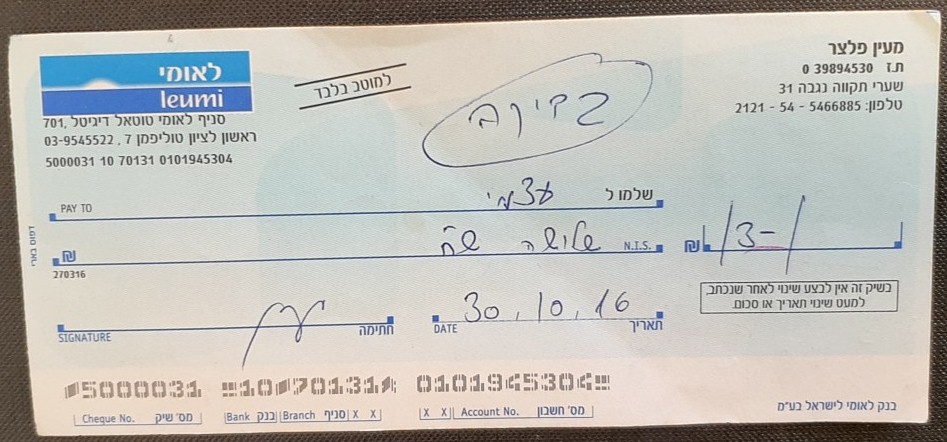 מעין פלצר
ת.ז 39894530 0
שערי תקווה נגבה 31
טלפון: 5466885 - 54 - 2121
לאומי
leumi
סניף לאומי טוטאל דיגיטל, 701
ראשון לציון טוליפמן 7 , 03-9545522
5000031 10 70131 0101945304
למוטב בלבד
שלמו ל עצמי PAY TO
שלושה שח N.I.S. ₪
₪ /3-/
270316
דפוס בארי
בשיק זה אין לבצע שינוי לאחר שנכתב,
למעט שינוי תאריך או סכום.
תאריך 30.10.16 DATE
חתימה SIGNATURE
⑈5000031 ⑈10⑆70131⑆ 0101945304⑈
Cheque No. מס' שיק
Bank בנק Branch סניף X X
X X Account No. מס' חשבון
בנק לאומי לישראל בע"מ